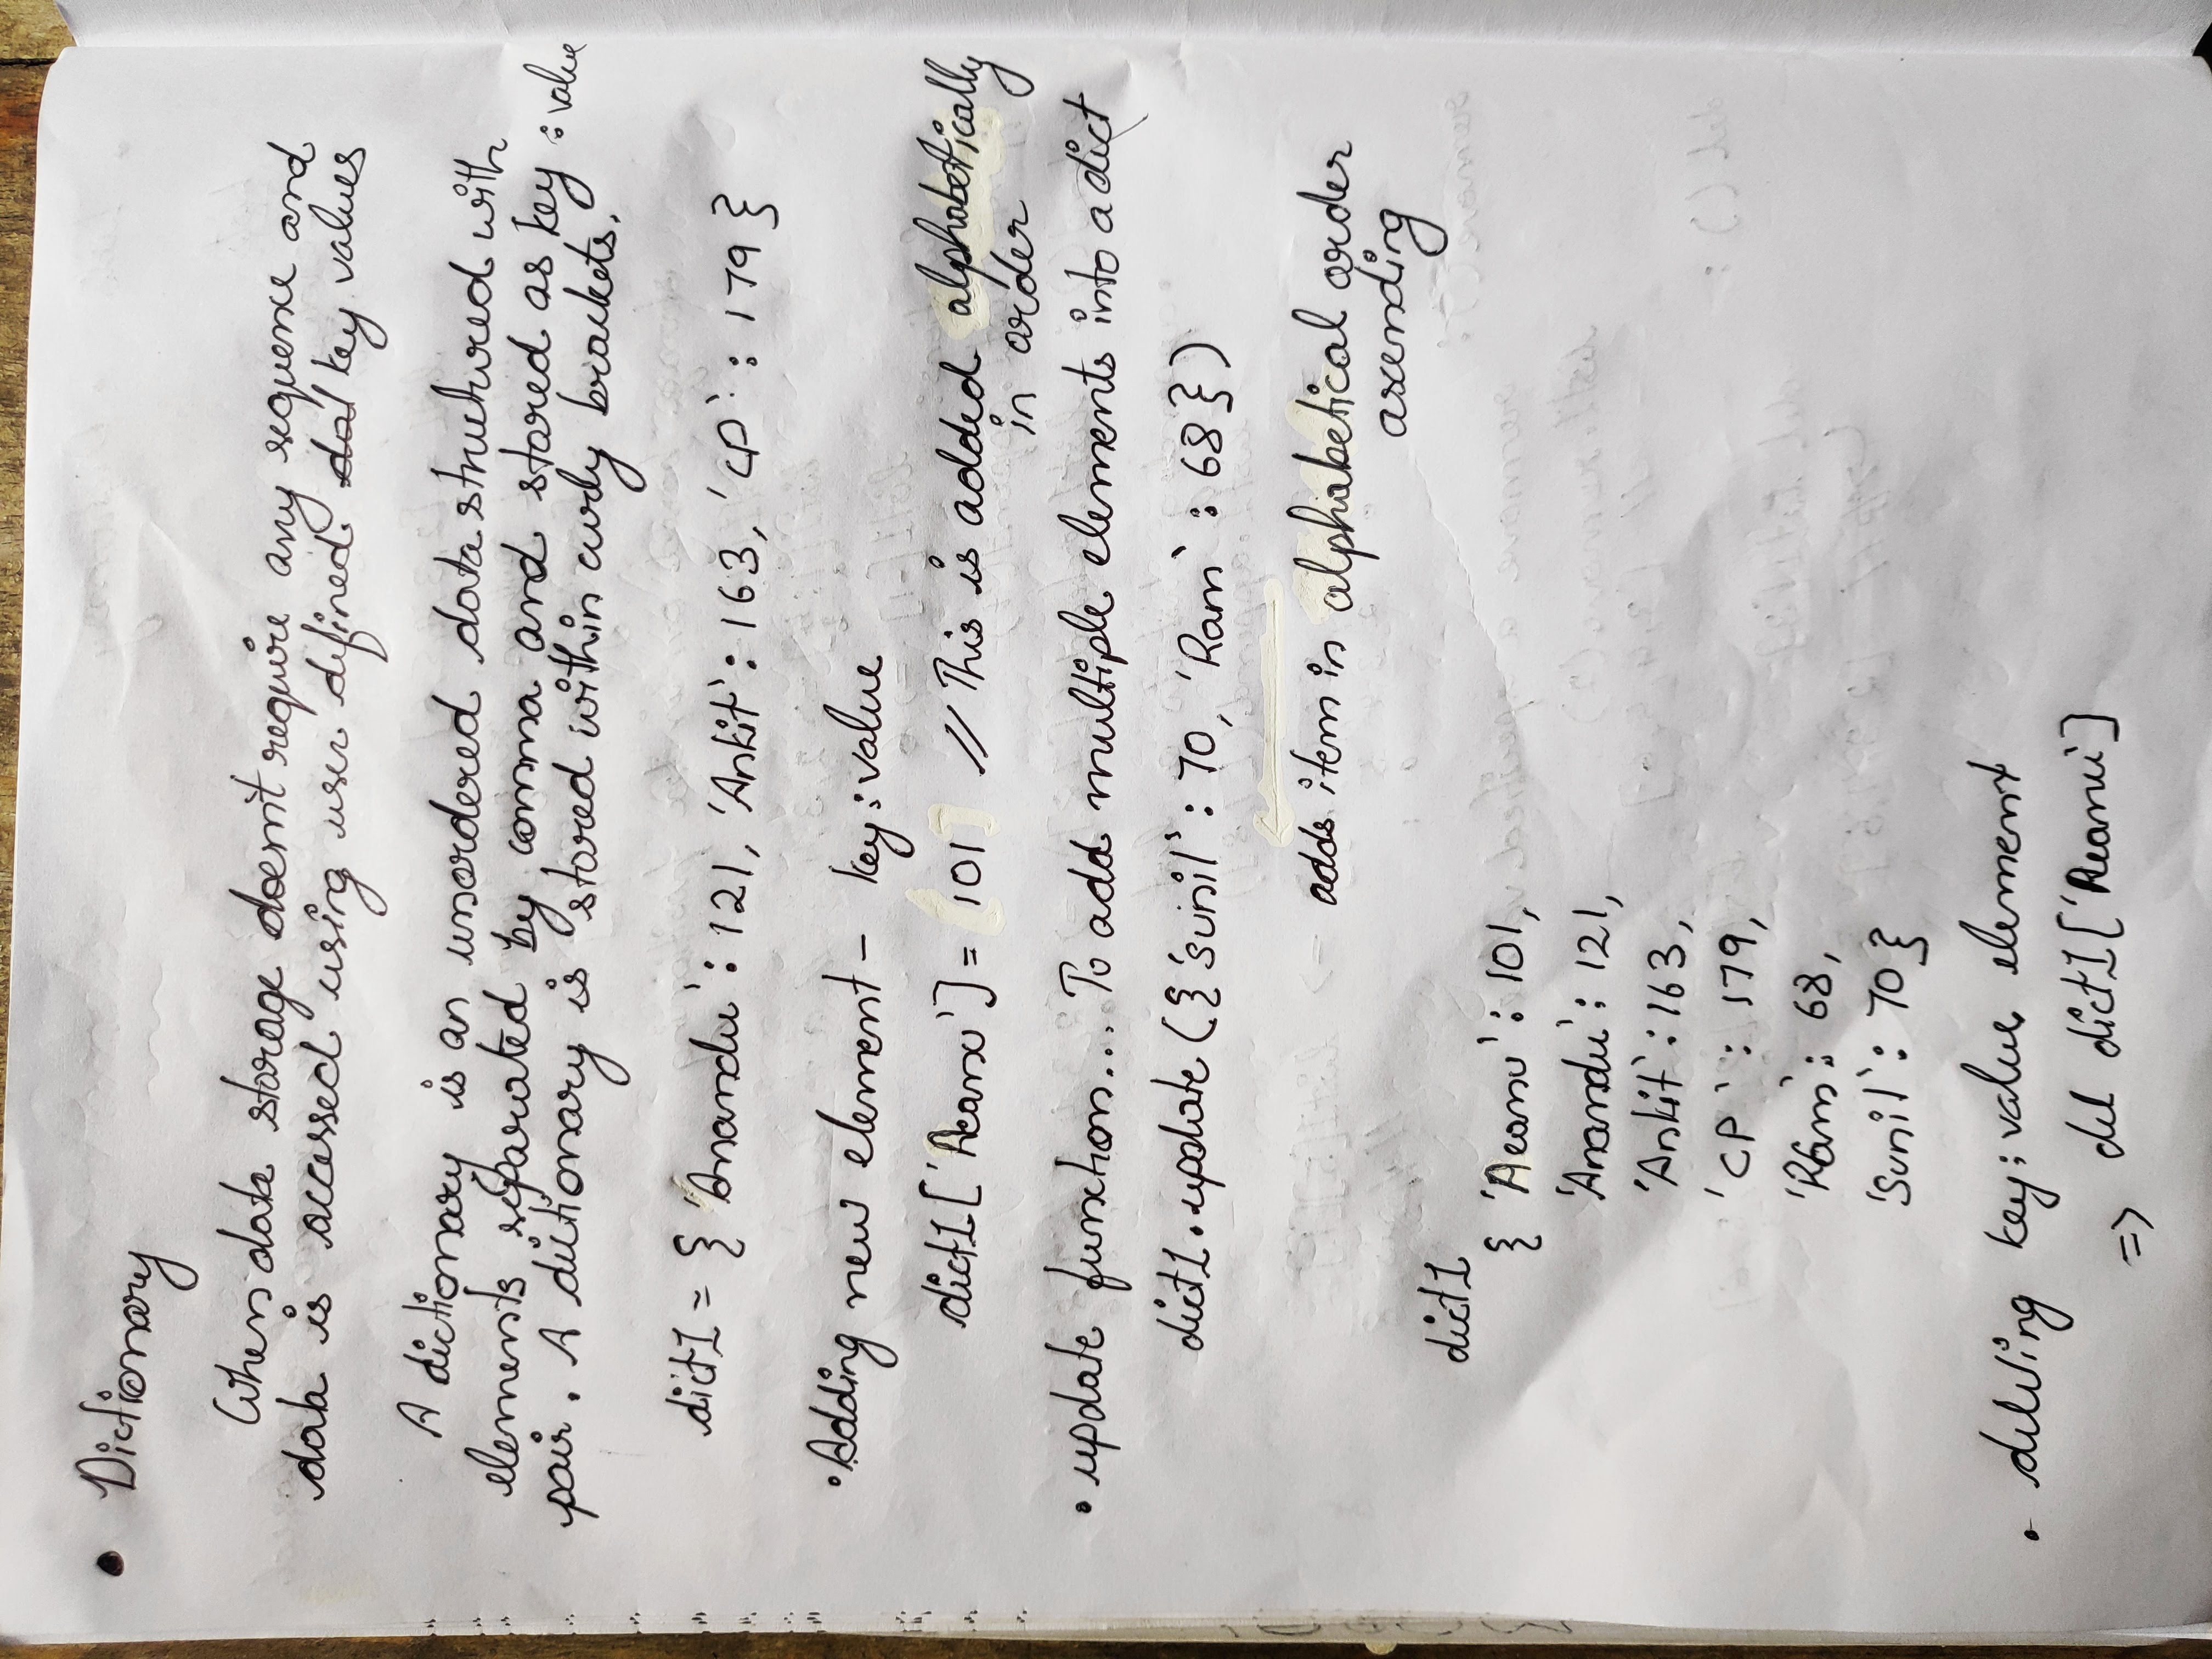 • Dictionary
When data storage doesn't require any sequence and
data is accessed using user defined key values
A dictionary is an unordered data structured with
elements separated by comma and stored as key : value
pair. A dictionary is stored within curly brackets.
dict1 = { 'Anandu' : 121, 'Ankit' : 163, 'CP' : 179 }
• Adding new element - key : value
dict1['Aeanu'] = 101 // This is added alphabetically
in order
• update function... To add multiple elements into a dict
dict1.update ({'Sunil' : 70, 'Ram' : 68})
adds item in alphabetical order
ascending
dict1
{ 'Aeanu' : 101,
'Anandu' : 121,
'Ankit' : 163,
'CP' : 179,
'Ram' : 68,
'Sunil' : 70 }
• key : value element
=> del dict1['Aeanu']